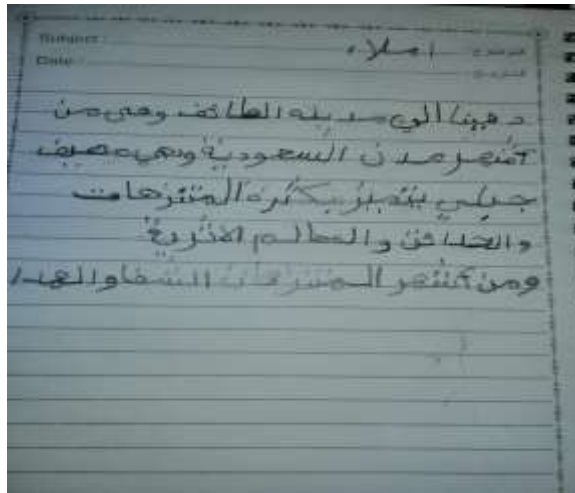 Subject : املاء الموضوع :
Date : التاريخ :
ذهبنا الى مدينه الطائف وهي من
أشهر مدن السعودية وهي مصيف
جبلي يتميز بكثرة المتنزهات
والحدائق والمعالم الاثرية
ومن أشهر المتنزهات الشفا والهدا